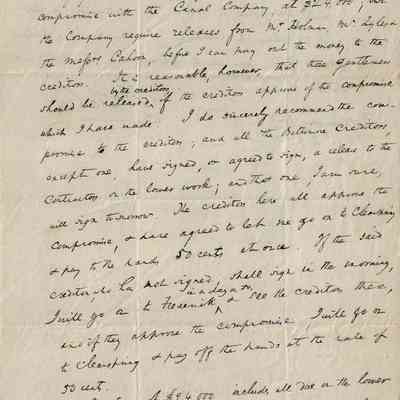 compromise with the Canal Company, at $24,000; but
the Company require releases from Mr Holman, Mr Lyles &
the Messrs Cahoon, before I can pay out the money to the
creditors. It is reasonable, however, that these gentlemen
should be released, by the creditors, if the creditors approve of the compromise
which I have made. I do sincerely recommend the com-
promise to the creditors; and all the Creditors,
except one, have signed, or agreed to sign, a release to the
Contractors on the lower work; and that one, I am sure,
will sign tomorrow. The creditors here all approve the
compromise, & have agreed to let me go on to Clearspring
& pay to the hands 50 cents at once. If the said
creditor, who has not signed, shall sign in the morning,
I will go on to Frederick in a day or so & see the creditors there,
and if they approve the compromise I will go on
to Clearspring & pay off the hands at the rate of
50 cents.
$24,000 include all due on the lower